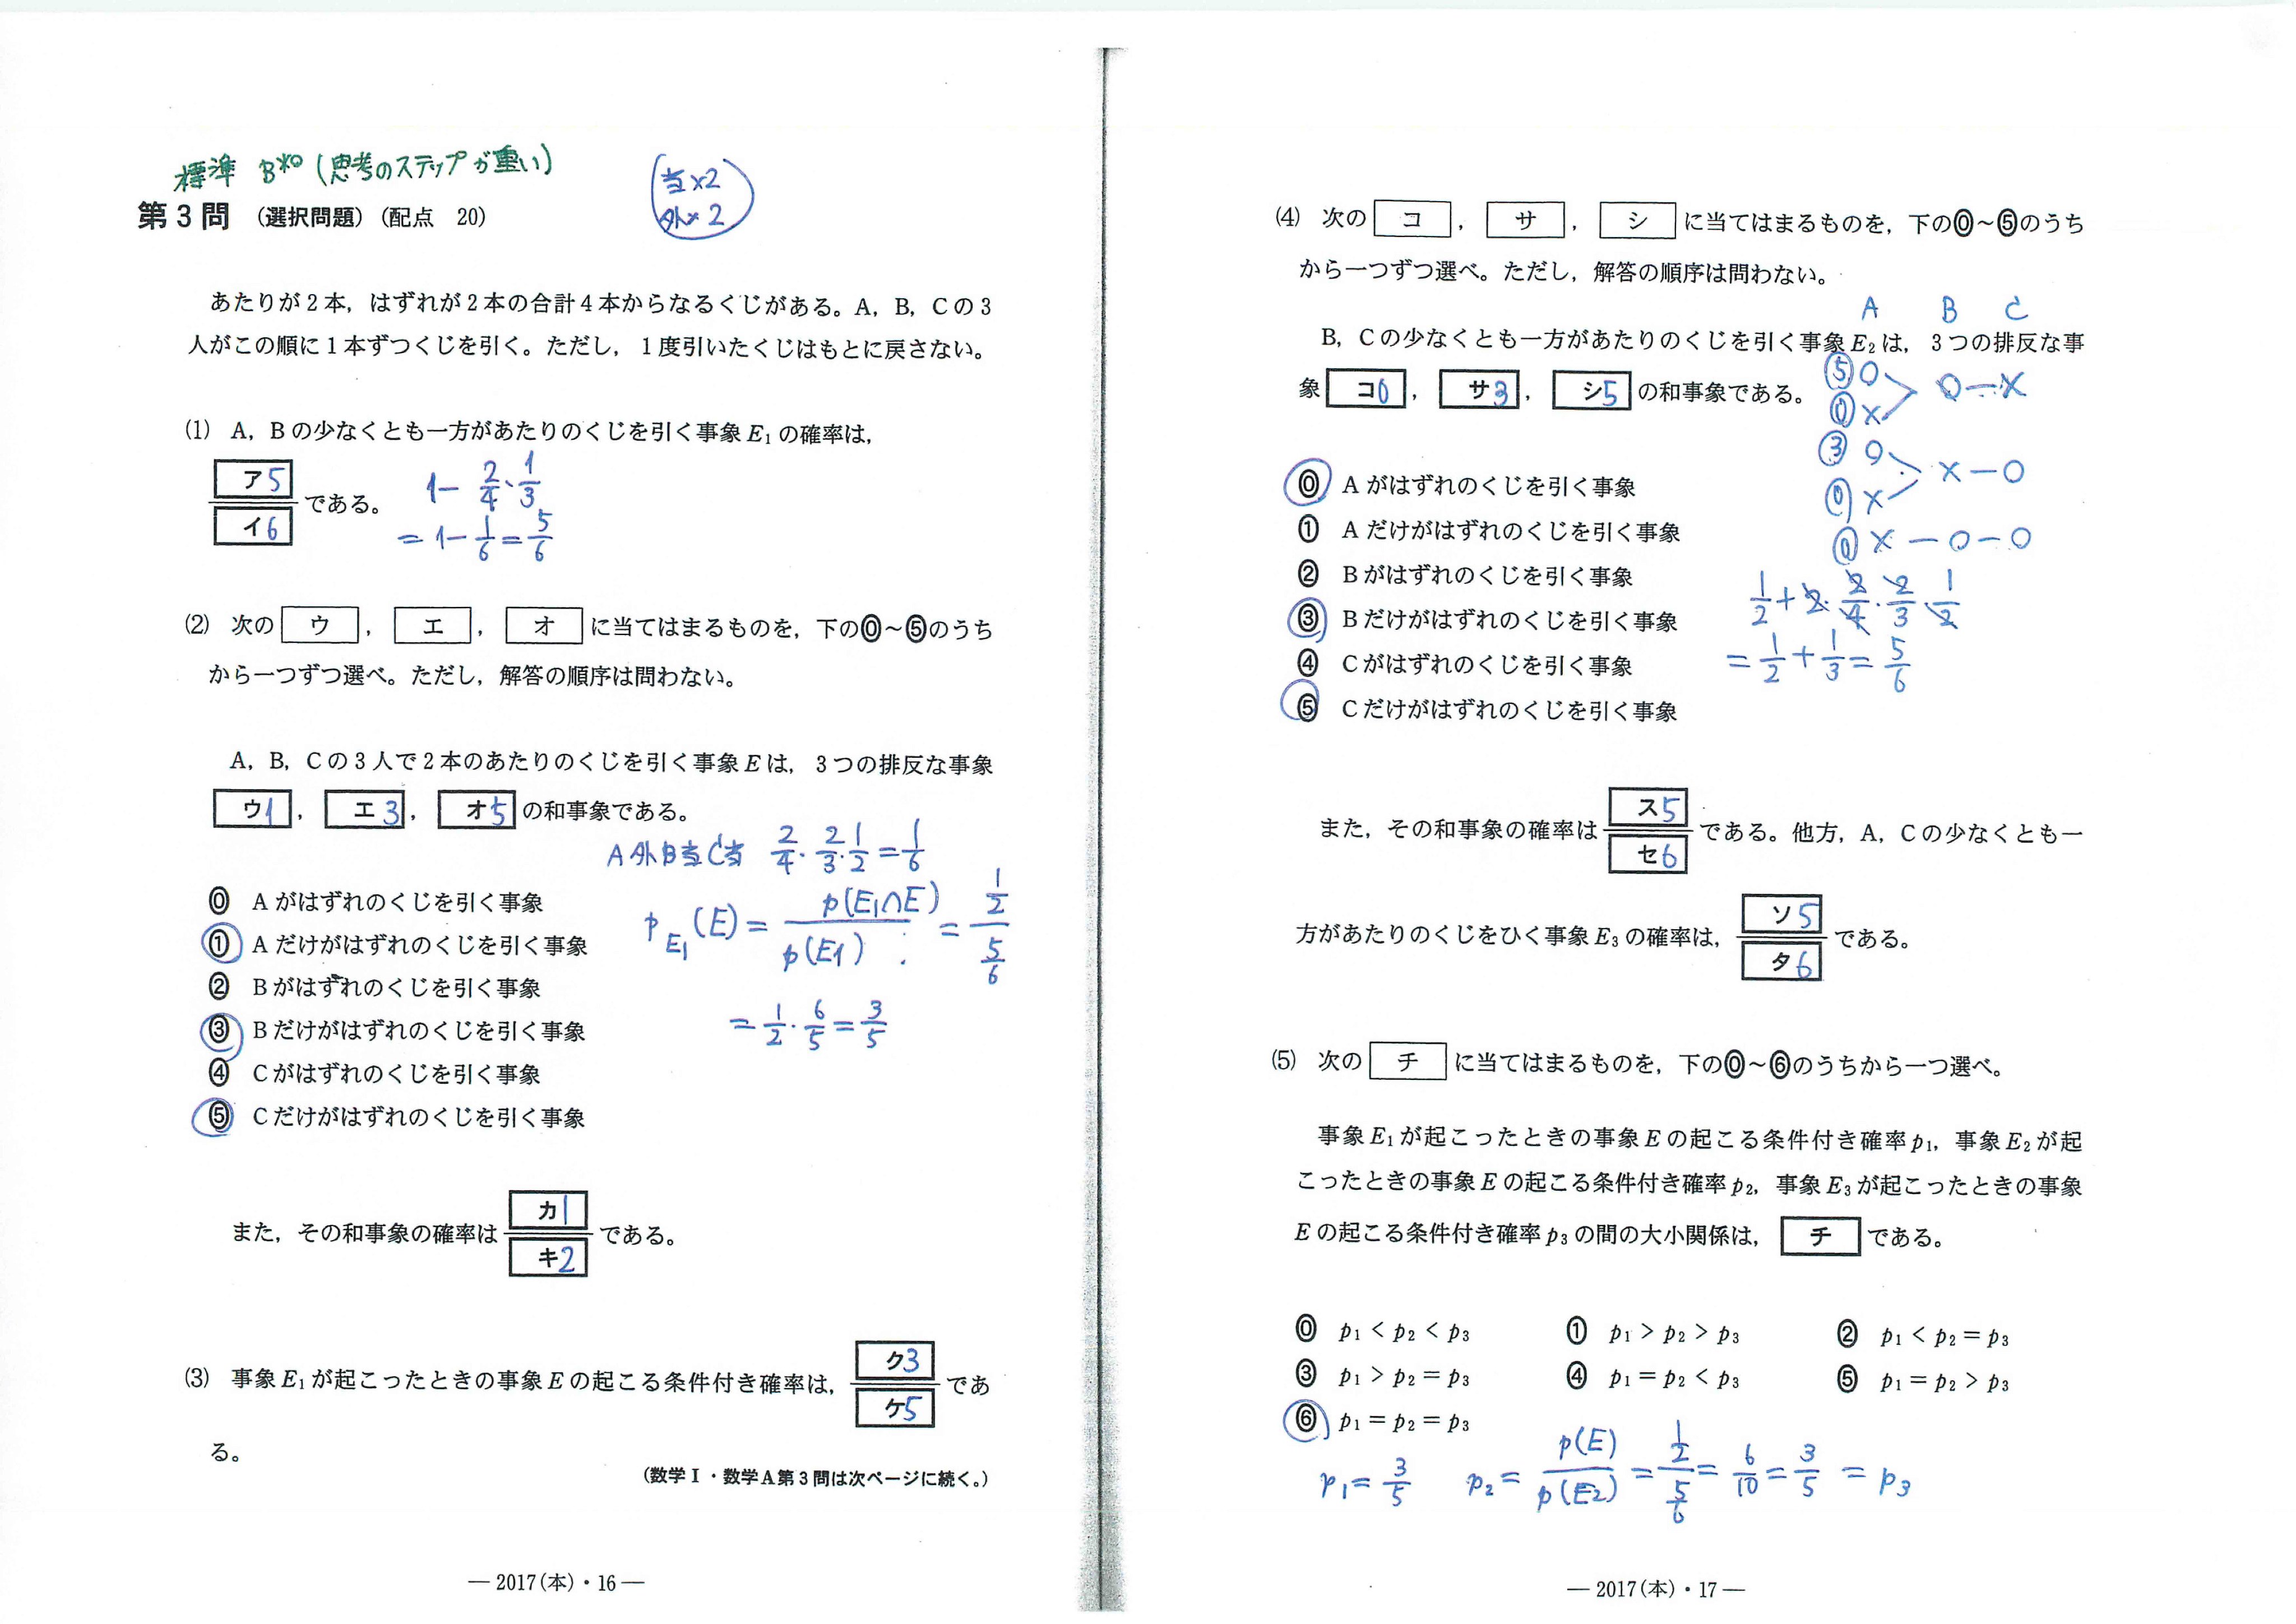 標準 B※。(思考のステップが重い)
当×2
外×2
第3問 (選択問題)(配点 20)
あたりが2本,はずれが2本の合計4本からなるくじがある。A,B,Cの3
人がこの順に1本ずつくじを引く。ただし,1度引いたくじはもとに戻さない。
(1) A,Bの少なくとも一方があたりのくじを引く事象E₁の確率は,
ア5/イ6 である。
1-2/4・1/3
=1-1/6=5/6
(2) 次の ウ , エ , オ に当てはまるものを,下の⓪~⑤のうち
から一つずつ選べ。ただし,解答の順序は問わない。
A,B,Cの3人で2本のあたりのくじを引く事象Eは,3つの排反な事象
ウ1 , エ3 , オ5 の和事象である。
A外B当C当 2/4・2/3・1/2=1/6
⓪ Aがはずれのくじを引く事象
① Aだけがはずれのくじを引く事象
② Bがはずれのくじを引く事象
③ Bだけがはずれのくじを引く事象
④ Cがはずれのくじを引く事象
⑤ Cだけがはずれのくじを引く事象
p_E₁(E)=p(E₁∩E)/p(E1)=(1/2)/(5/6)
=1/2・6/5=3/5
また,その和事象の確率は カ1/キ2 である。
(3) 事象E₁が起こったときの事象Eの起こる条件付き確率は, ク3/ケ5 であ
る。
(数学Ⅰ・数学A第3問は次ページに続く。)
— 2017(本)・16 —
(4) 次の コ , サ , シ に当てはまるものを,下の⓪~⑤のうち
から一つずつ選べ。ただし,解答の順序は問わない。
A B C
B,Cの少なくとも一方があたりのくじを引く事象E₂は,3つの排反な事
象 コ0 , サ3 , シ5 の和事象である。
⑤ ○
⓪ × > ○-×
③ ○
⓪ × > ×-○
⓪ ×-○-○
⓪ Aがはずれのくじを引く事象
① Aだけがはずれのくじを引く事象
② Bがはずれのくじを引く事象
③ Bだけがはずれのくじを引く事象
④ Cがはずれのくじを引く事象
⑤ Cだけがはずれのくじを引く事象
1/2+2・2/4・2/3・1/2
=1/2+1/3=5/6
また,その和事象の確率は ス5/セ6 である。他方,A,Cの少なくとも一
方があたりのくじをひく事象E₃の確率は, ソ5/タ6 である。
(5) 次の チ に当てはまるものを,下の⓪~⑥のうちから一つ選べ。
事象E₁が起こったときの事象Eの起こる条件付き確率p₁,事象E₂が起
こったときの事象Eの起こる条件付き確率p₂,事象E₃が起こったときの事象
Eの起こる条件付き確率p₃の間の大小関係は, チ である。
⓪ p₁<p₂<p₃ ① p₁>p₂>p₃ ② p₁<p₂=p₃
③ p₁>p₂=p₃ ④ p₁=p₂<p₃ ⑤ p₁=p₂>p₃
⑥ p₁=p₂=p₃
p₁=3/5 p₂=p(E)/p(E2)=(1/2)/(5/6)=6/10=3/5=p₃
— 2017(本)・17 —